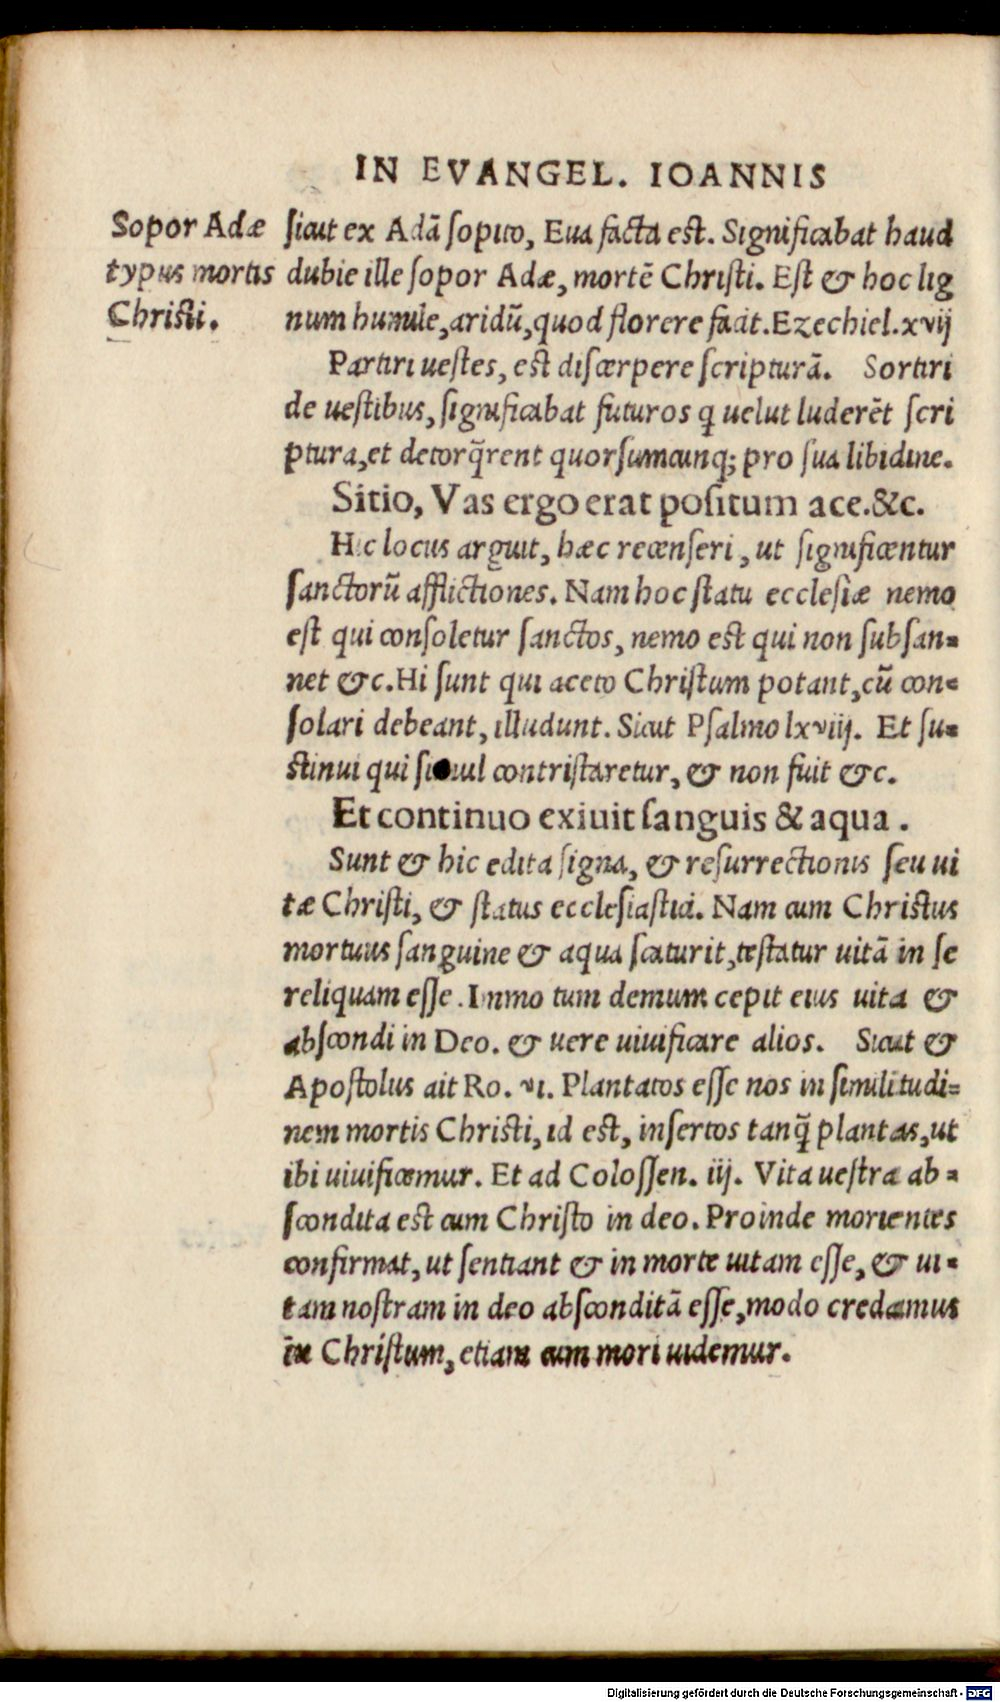 IN EVANGEL. IOANNIS
Sopor Adæ
typus mortis
Christi.
sicut ex Adā sopito, Eua facta est. Significabat haud
dubie ille sopor Adæ, mortē Christi. Est & hoc lig
num humile, aridū, quod florere facit. Ezechiel. xvij
Partiri uestes, est discerpere scripturā. Sortiri
de uestibus, significabat futuros q uelut luderēt scri
ptura, et detorq̄rent quorsumcunq; pro sua libidine.
Sitio, Vas ergo erat positum ace. &c.
Hic locus arguit, hæc recenseri, ut significentur
sanctorū afflictiones. Nam hoc statu ecclesiæ nemo
est qui consoletur sanctos, nemo est qui non subsan-
net &c. Hi sunt qui aceto Christum potant, cū con-
solari debeant, illudunt. Sicut Psalmo lxviij. Et su-
stinui qui simul contristaretur, & non fuit &c.
Et continuo exiuit sanguis & aqua .
Sunt & hic edita signa, & resurrectionis seu ui
tæ Christi, & status ecclesiastici. Nam cum Christus
mortuus sanguine & aqua scaturit, testatur uitā in se
reliquam esse. Immo tum demum cepit eius uita &
abscondi in Deo. & uere uiuificare alios. Sicut &
Apostolus ait Ro. vi. Plantatos esse nos in similitudi=
nem mortis Christi, id est, insertos tanq̄ plantas, ut
ibi uiuificemur. Et ad Colossen. iij. Vita uestra ab-
scondita est cum Christo in deo. Proinde morientes
confirmat, ut sentiant & in morte uitam esse, & ui-
tam nostram in deo absconditā esse, modo credamus
in Christum, etiam cum mori uidemur.
Digitalisierung gefördert durch die Deutsche Forschungsgemeinschaft - DFG